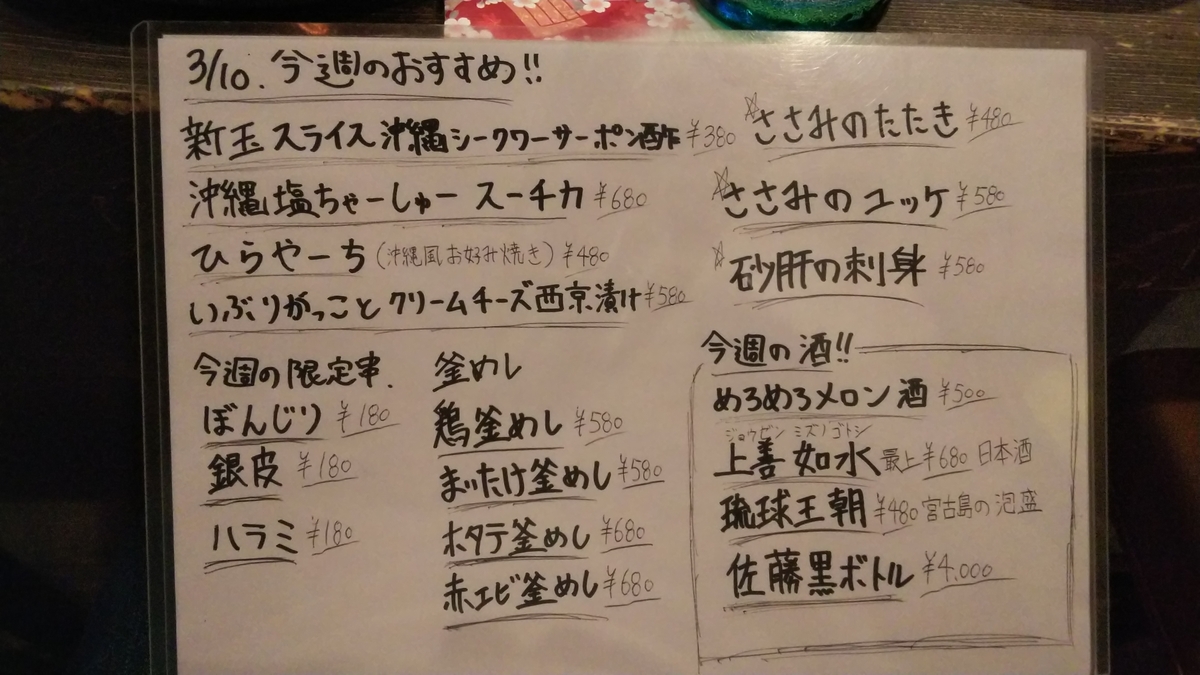 3/10. 今週のおすすめ!!
新玉スライス沖縄シークワーサーポン酢 ¥380
沖縄塩ちゃーしゅー スーチカ ¥680
ひらやーち (沖縄風お好み焼き) ¥480
いぶりがっことクリームチーズ西京漬け ¥580
☆ささみのたたき ¥480
☆ささみのユッケ ¥580
☆砂肝の刺身 ¥580
今週の限定串.
ぼんじり ¥180
銀皮 ¥180
ハラミ ¥180
釜めし
鶏釜めし ¥580
まいたけ釜めし ¥580
ホタテ釜めし ¥680
赤エビ釜めし ¥680
今週の酒!!
めろめろメロン酒 ¥500
ジョウゼン ミズノゴトシ
上善如水 最上 ¥680 日本酒
琉球王朝 ¥480 宮古島の泡盛
佐藤黒ボトル ¥4.000